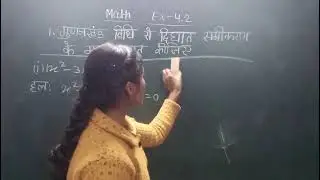 Math Ex-4.2
1. गुणनखंड विधि से द्विघात समीकरण
के कीजिए
(i) x²-3
हल: x² =0